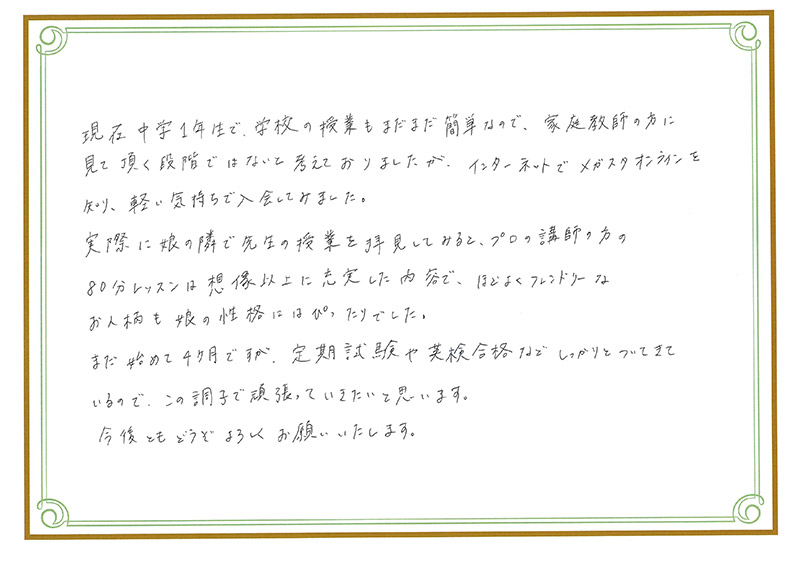 現在中学1年生で、学校の授業もまだまだ簡単なので、家庭教師の方に
見て頂く段階ではないと考えておりましたが、インターネットでメガスタオンラインを
知り、軽い気持ちで入会してみました。
実際に娘の隣で先生の授業を拝見してみると、プロの講師の方の
80分レッスンは想像以上に充実した内容で、ほどよくフレンドリーな
お人柄も娘の性格にはぴったりでした。
まだ始めて4ヶ月ですが、定期試験や英検合格などしっかりとついてきて
いるので、この調子で頑張っていきたいと思います。
今後ともどうぞよろしくお願いいたします。